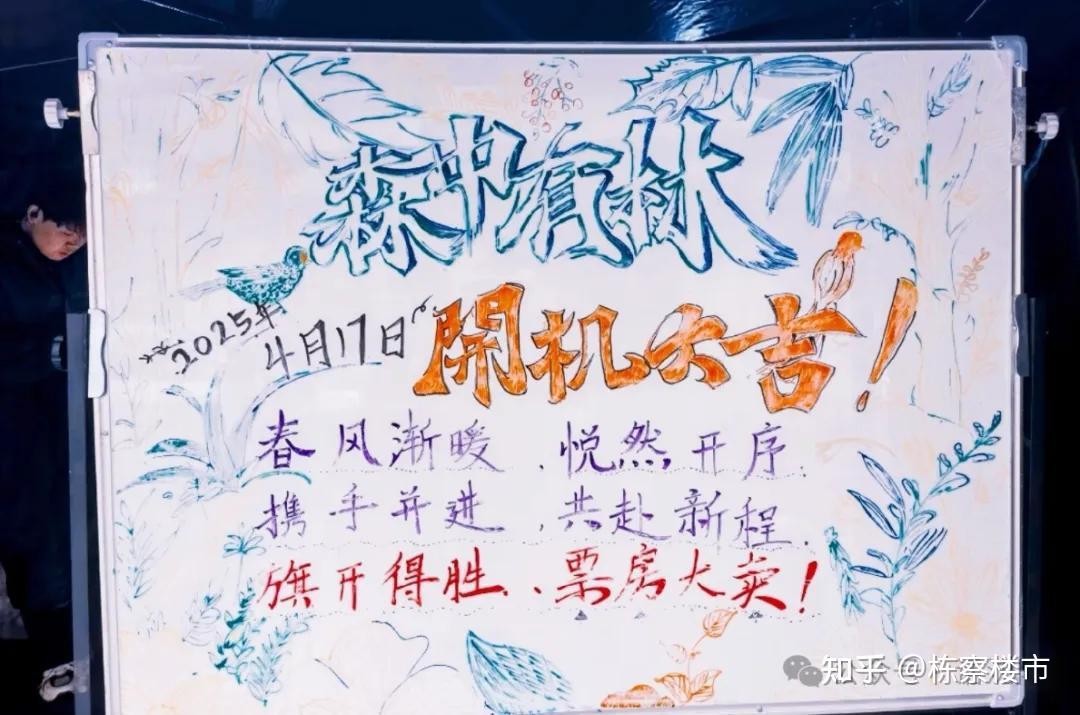 森中有林
2025年4月17日
開机大吉!
春风渐暖，悦然开序.
携手并进，共赴新程.
旗开得胜、票房大卖!
知乎 @栋察楼市